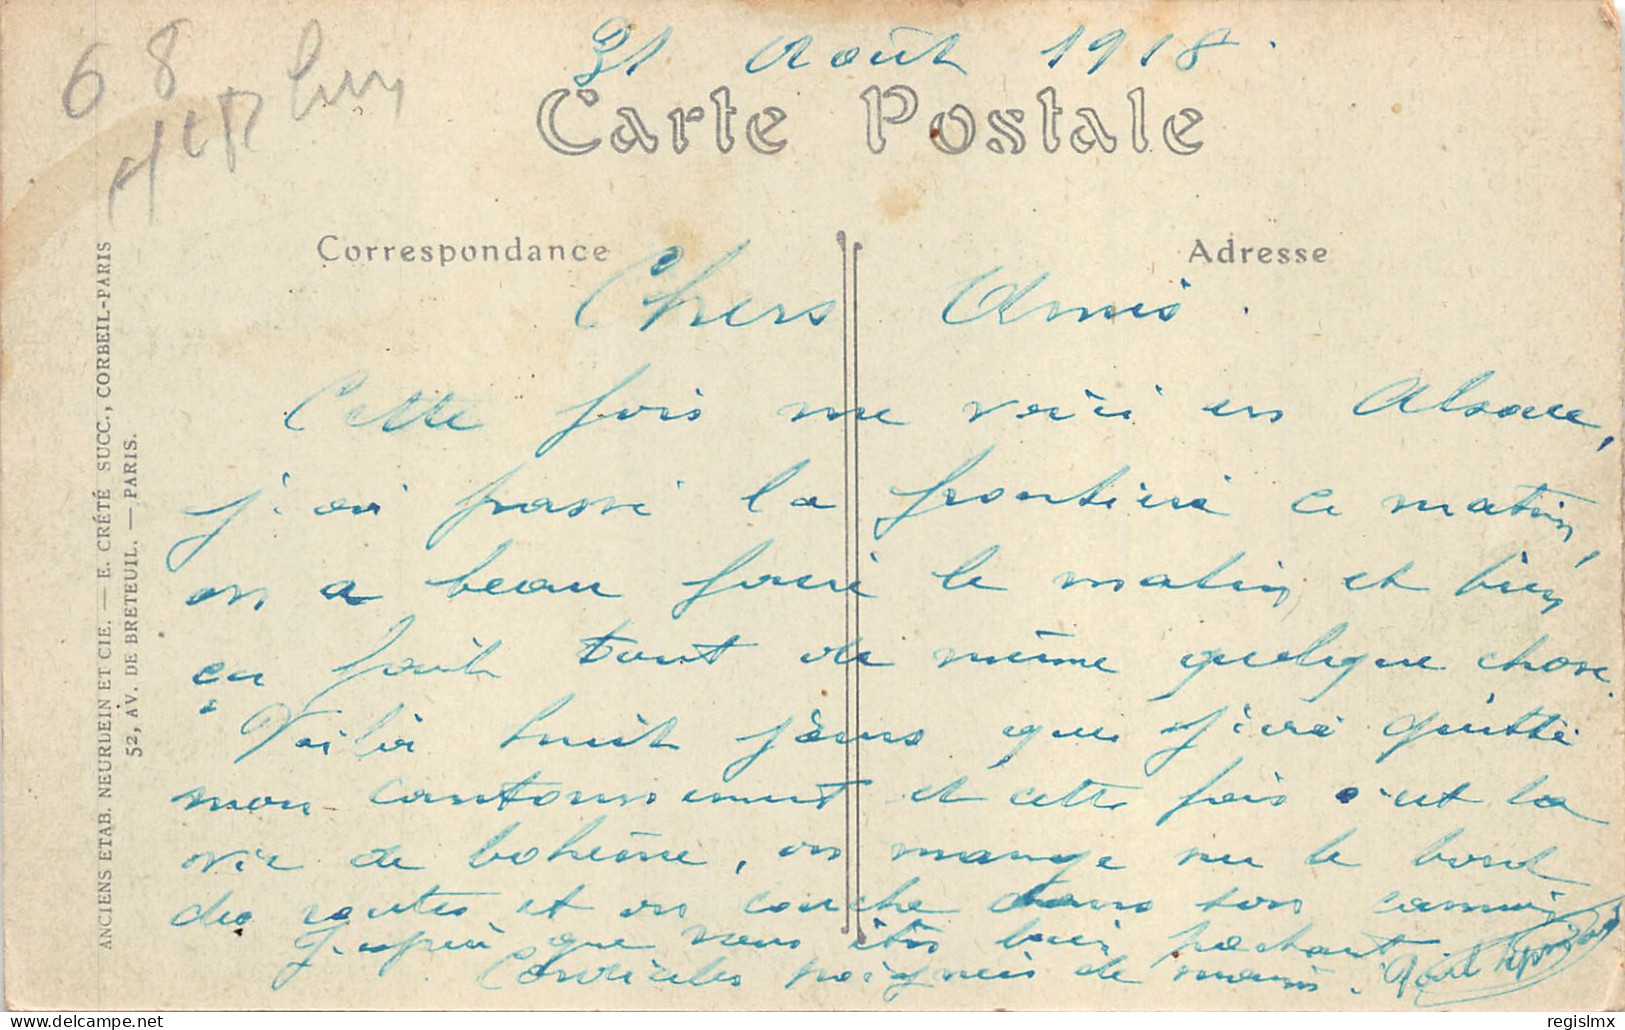 68
31 Août 1918.
Carte Postale
Correspondance
Adresse
Chers Amis.
Cette fois me voici en Alsace,
j'ai passé la frontière ce matin,
on a beau faire le matin et bien
ça fait tout de même quelque chose.
Voilà huit jours que j'ai quitté
mon cantonnement et cette fois c'est la
vie de bohème, on mange sur le bord
des routes et on couche dans son camion
J'espère que vous êtes bien portant
Cordiales poignées de mains.
ANCIENS ETAB. NEURDEIN ET CIE. — E. CRÉTÉ SUCC., CORBEIL-PARIS
52, AV. DE BRETEUIL. — PARIS.
regislmx